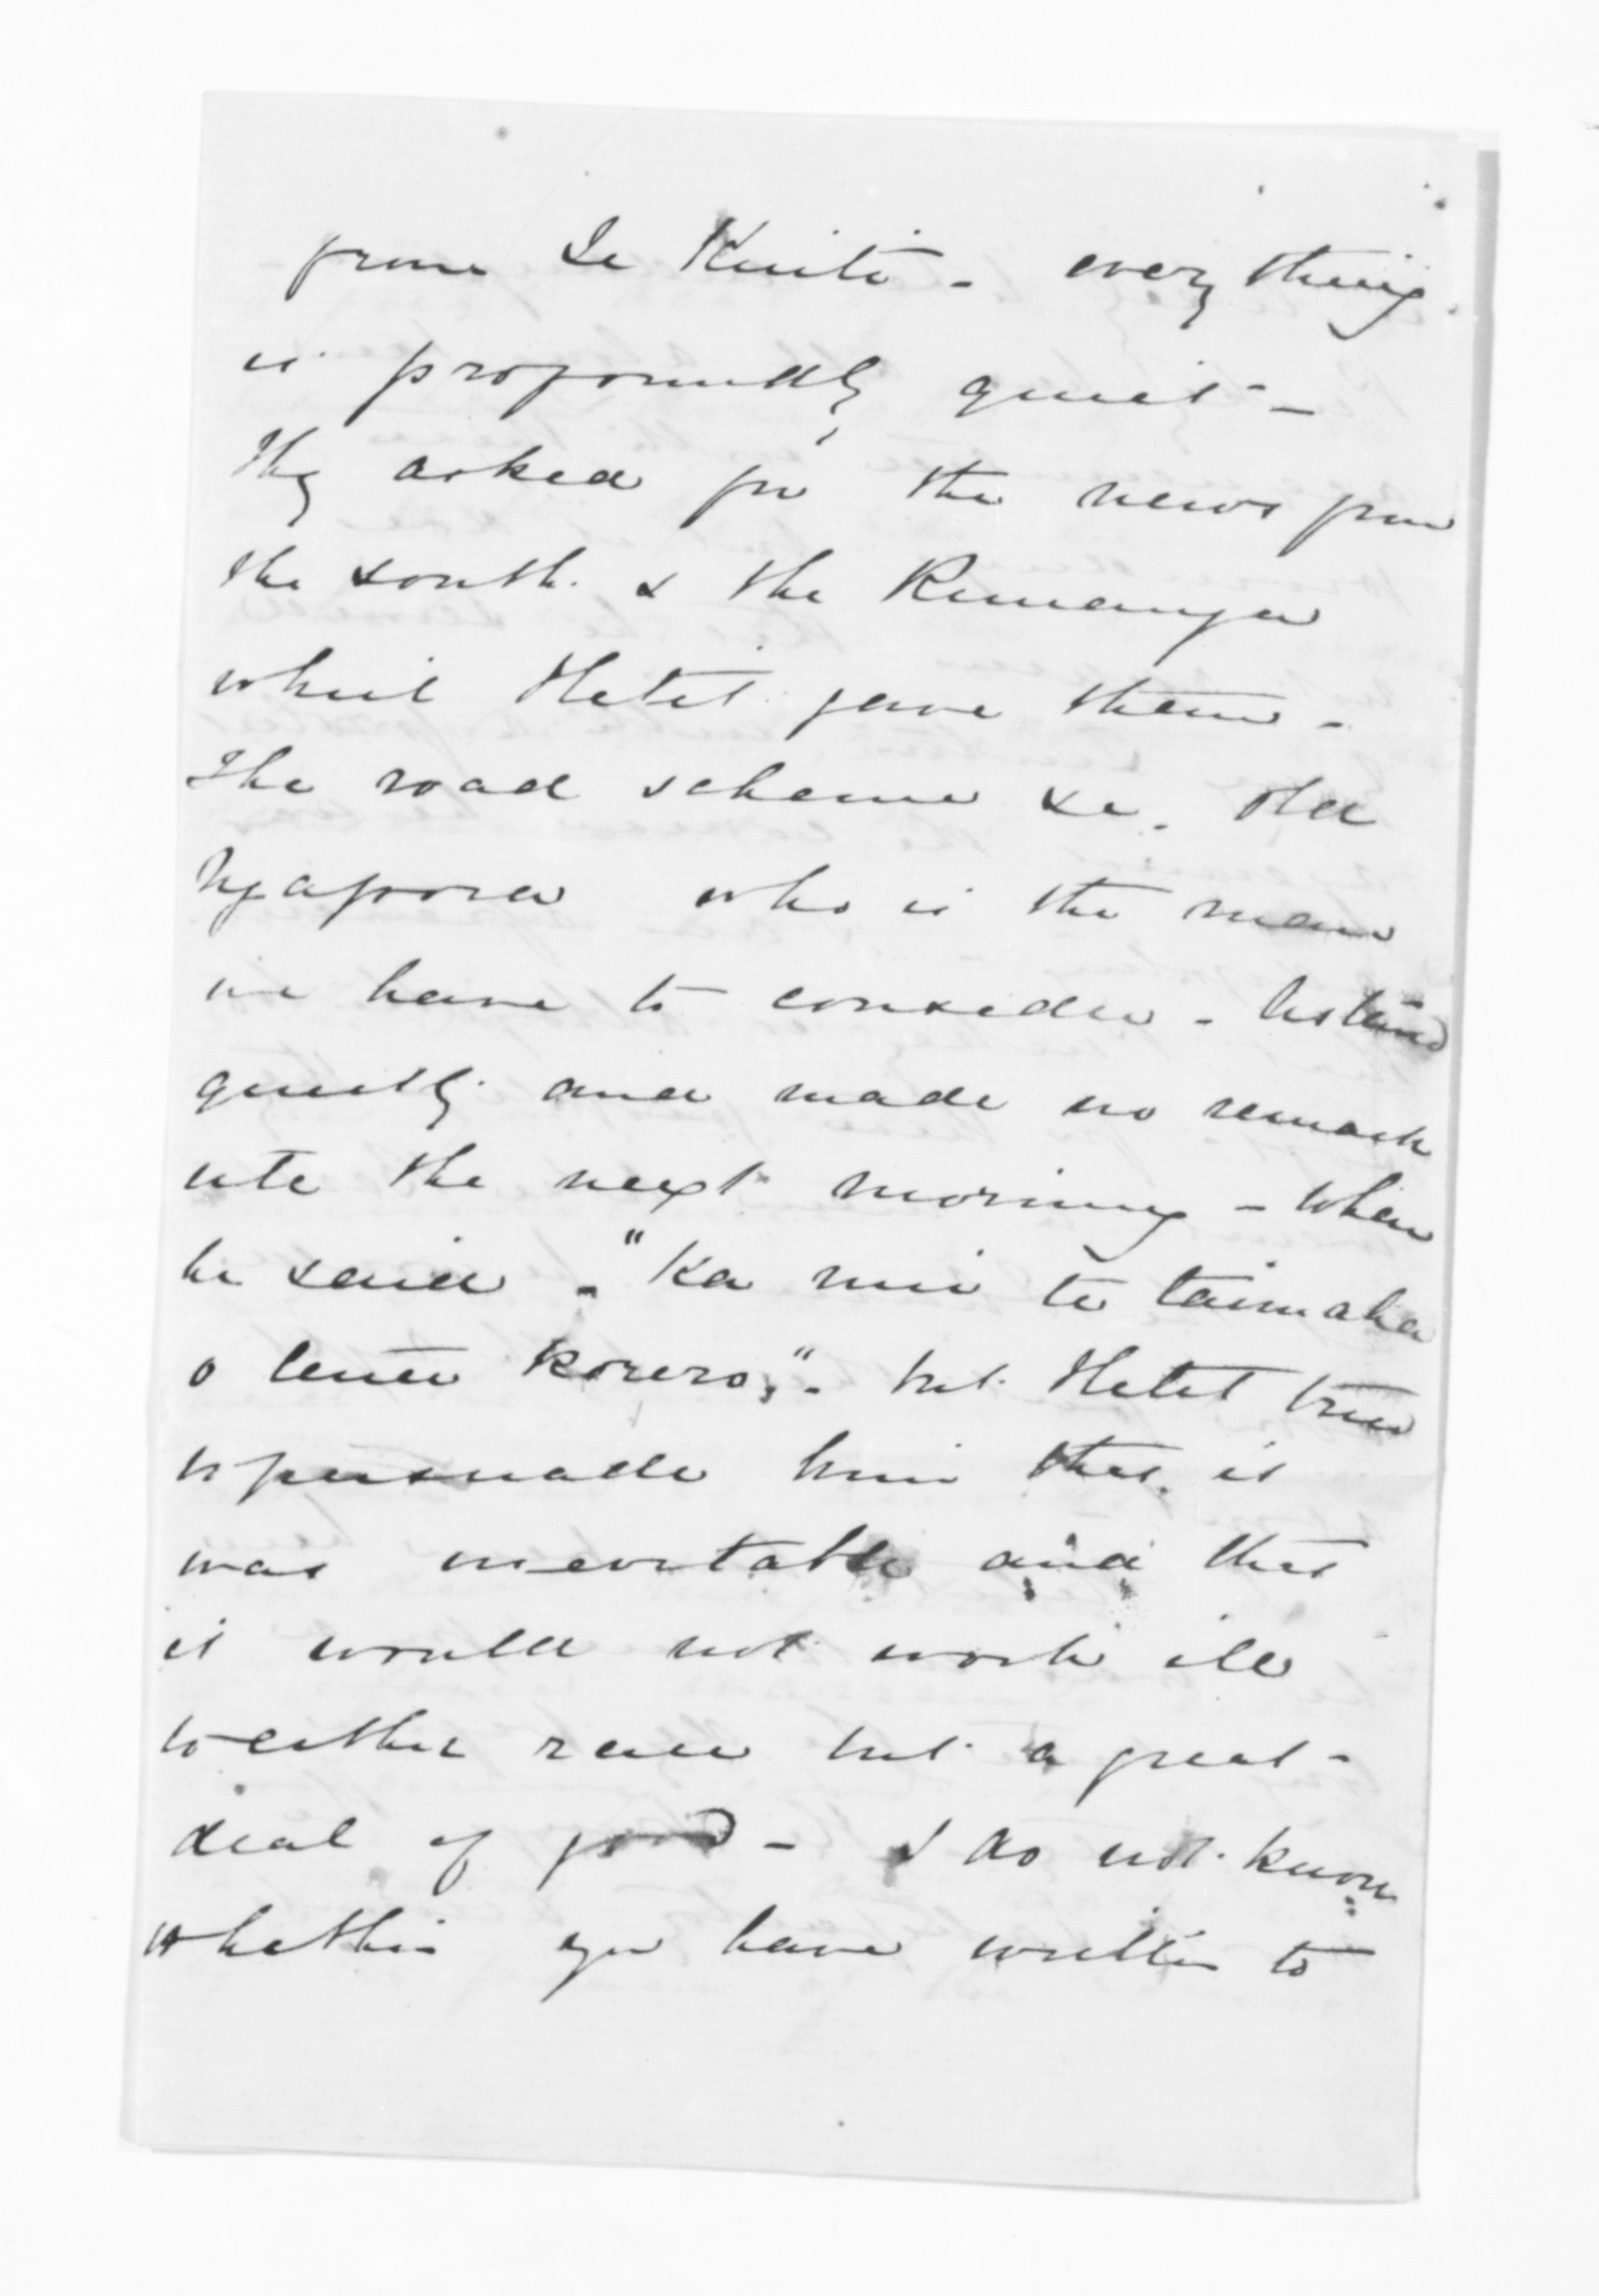 from Te Kuiti - every thing
is profoundly quiet -
They asked for the news from
the south & the Runanga
which Hetet gave them -
The road scheme &c. Old
Ngapora who is the man
we have to consider - listened
quietly and made no remark
until the next morning - when
he said - "Ka nui te taimaha
o tenei korero," - but Hetet tried
to persuade him that it
was inevitable and that
it would not work ill
to either race but a great
deal of good - I do not know
whether you have written to